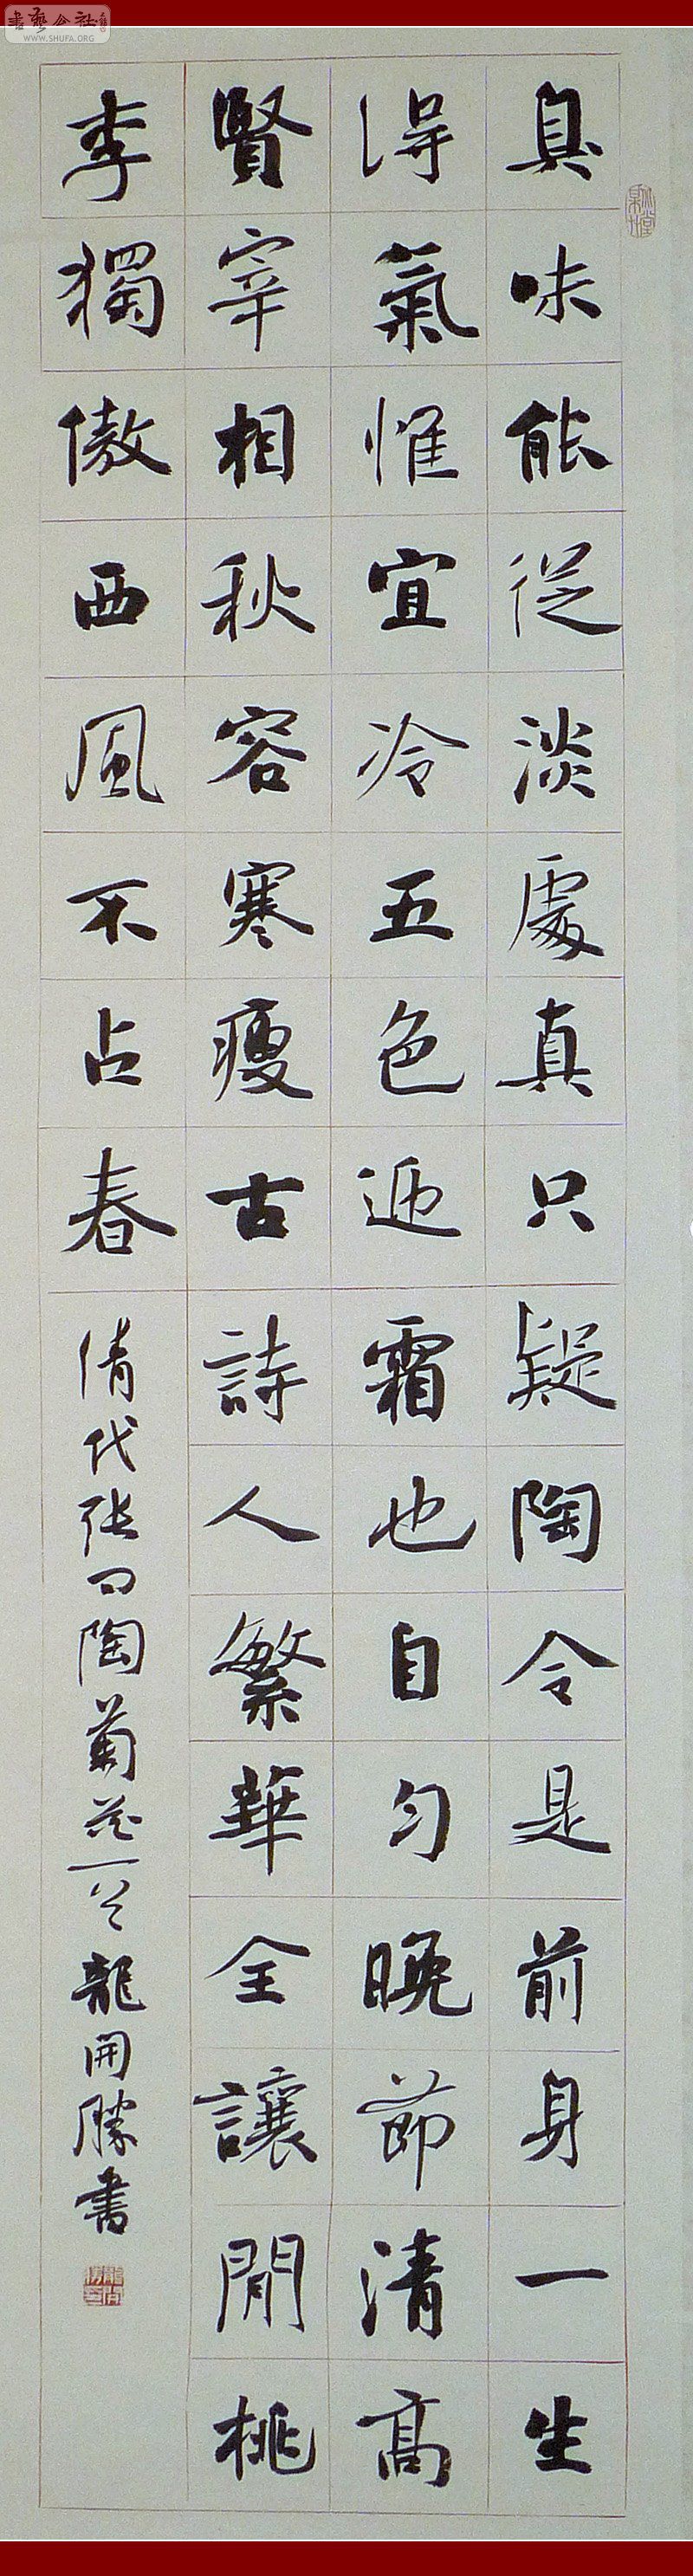 真味能從淡處真只疑陶令是前身一生
得氣惟宜冷五色迎霜也自勻晚節清高
賢宰相秋容寒瘦古詩人繁華全讓閒桃
李獨傲西風不占春
清代張曰陶菊花一首龍開勝書
書藝公社
WWW.SHUFA.ORG